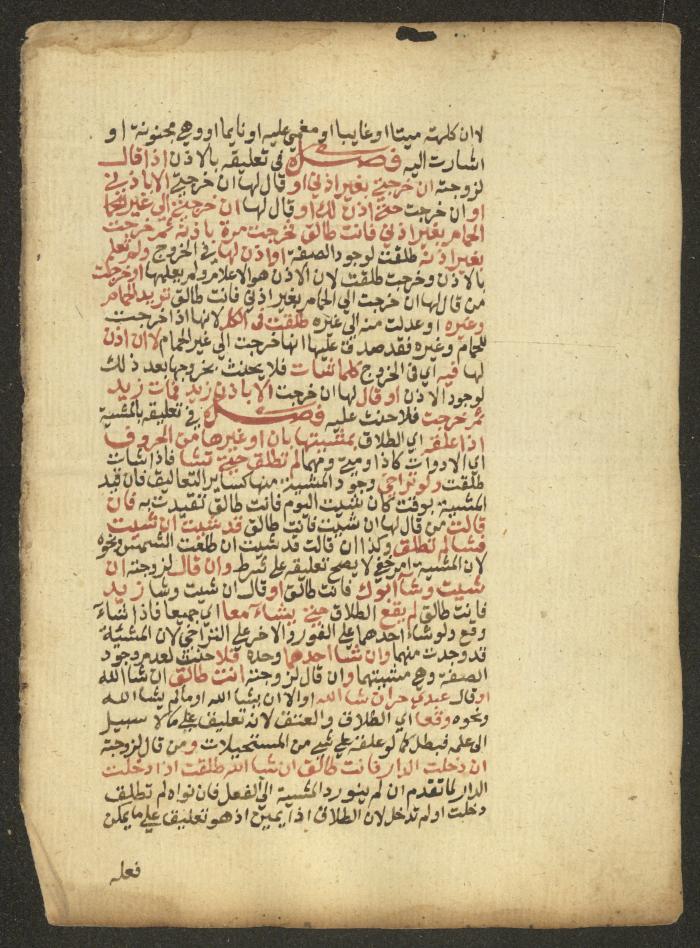 لا ان كلمته ميتا او غايبا او مغمى عليه او نايما او وهي مجنونة او
اشارت اليه فصل في تعليقه بالاذن اذا قال
لزوجته ان خرجتي بغير اذني او قال لها ان خرجتي الا باذني
او ان خرجت حتى اذن لك او قال لها ان خرجتي الى غير الحمام
الحمام بغير اذني فانت طالق فخرجت مرة باذنه ثم خرجت
بغير اذنه طلقت لوجود الصفة او اذن لها في الخروج ولم تعلم
بالاذن وخرجت طلقت لان الاذن هو الاعلام ولم يعلمها او خرجت
من قال لها ان خرجت الى الحمام بغير اذني فانت طالق تريد الحمام
وغيره او عدلت منه الى غيره طلقت في الكل لانها اذا خرجت
للحمام وغيره فقد صدق عليها انها خرجت الى غير الحمام لا ان اذن
لها فيه اي في الخروج كلما شات فلا يحنث بخروجها بعد ذلك
لوجود الاذن او قال لها ان خرجت الا باذن زيد فمات زيد
ثم خرجت فلا حنث عليه فصل في تعليقه بالمشية
اذا علقه اي الطلاق بمشيتها بان او غيرها من الحروف
اي الادوات كاذا ومتى ومهما لم تطلق حتى تشا فاذا شات
طلقت ولو تراخى وجود المشية منها كساير التعاليق فان قيد
المشية بوقت كان شيت اليوم فانت طالق تقيدت به فان
قالت من قال لها ان شيت فانت طالق قد شيت ان شيت
فشا لم تطلق وكذا ان قالت قد شيت ان طلعت الشمس ونحوه
لان المشية امر خفي لا يصح تعليقه على شرط وان قال لزوجته ان
شيت وشا ابوك فانت طالق او قال ان شيت وشا زيد
فانت طالق لم يقع الطلاق حتى يشاء معا اي جميعا فاذا شاء
وقع ولو شا احدهما على الفور والاخر على التراخي لان المشية
قد وجدت منهما وان شا احدهما وحده فلا حنث لعدم وجود
الصفة وهي مشيتهما وان قال لزوجته انت طالق ان شا الله
او قال عبدي حر ان شا الله او الا ان يشا الله او ما لم يشا الله
ونحوه وقعا اي الطلاق والعتق لانه تعليق على ما لا سبيل
الى علمه فبطل كما لو علقه على شي من المستحيلات ومن قال لزوجته
ان دخلت الدار فانت طالق ان شا الله طلقت اذا دخلت
الدار لما تقدم ان لم ينو رد المشية الى الفعل فان نواه لم تطلق
دخلت او لم تدخل لان الطلاق اذا يمين اذ هو تعليق على ما يمكن
فعله